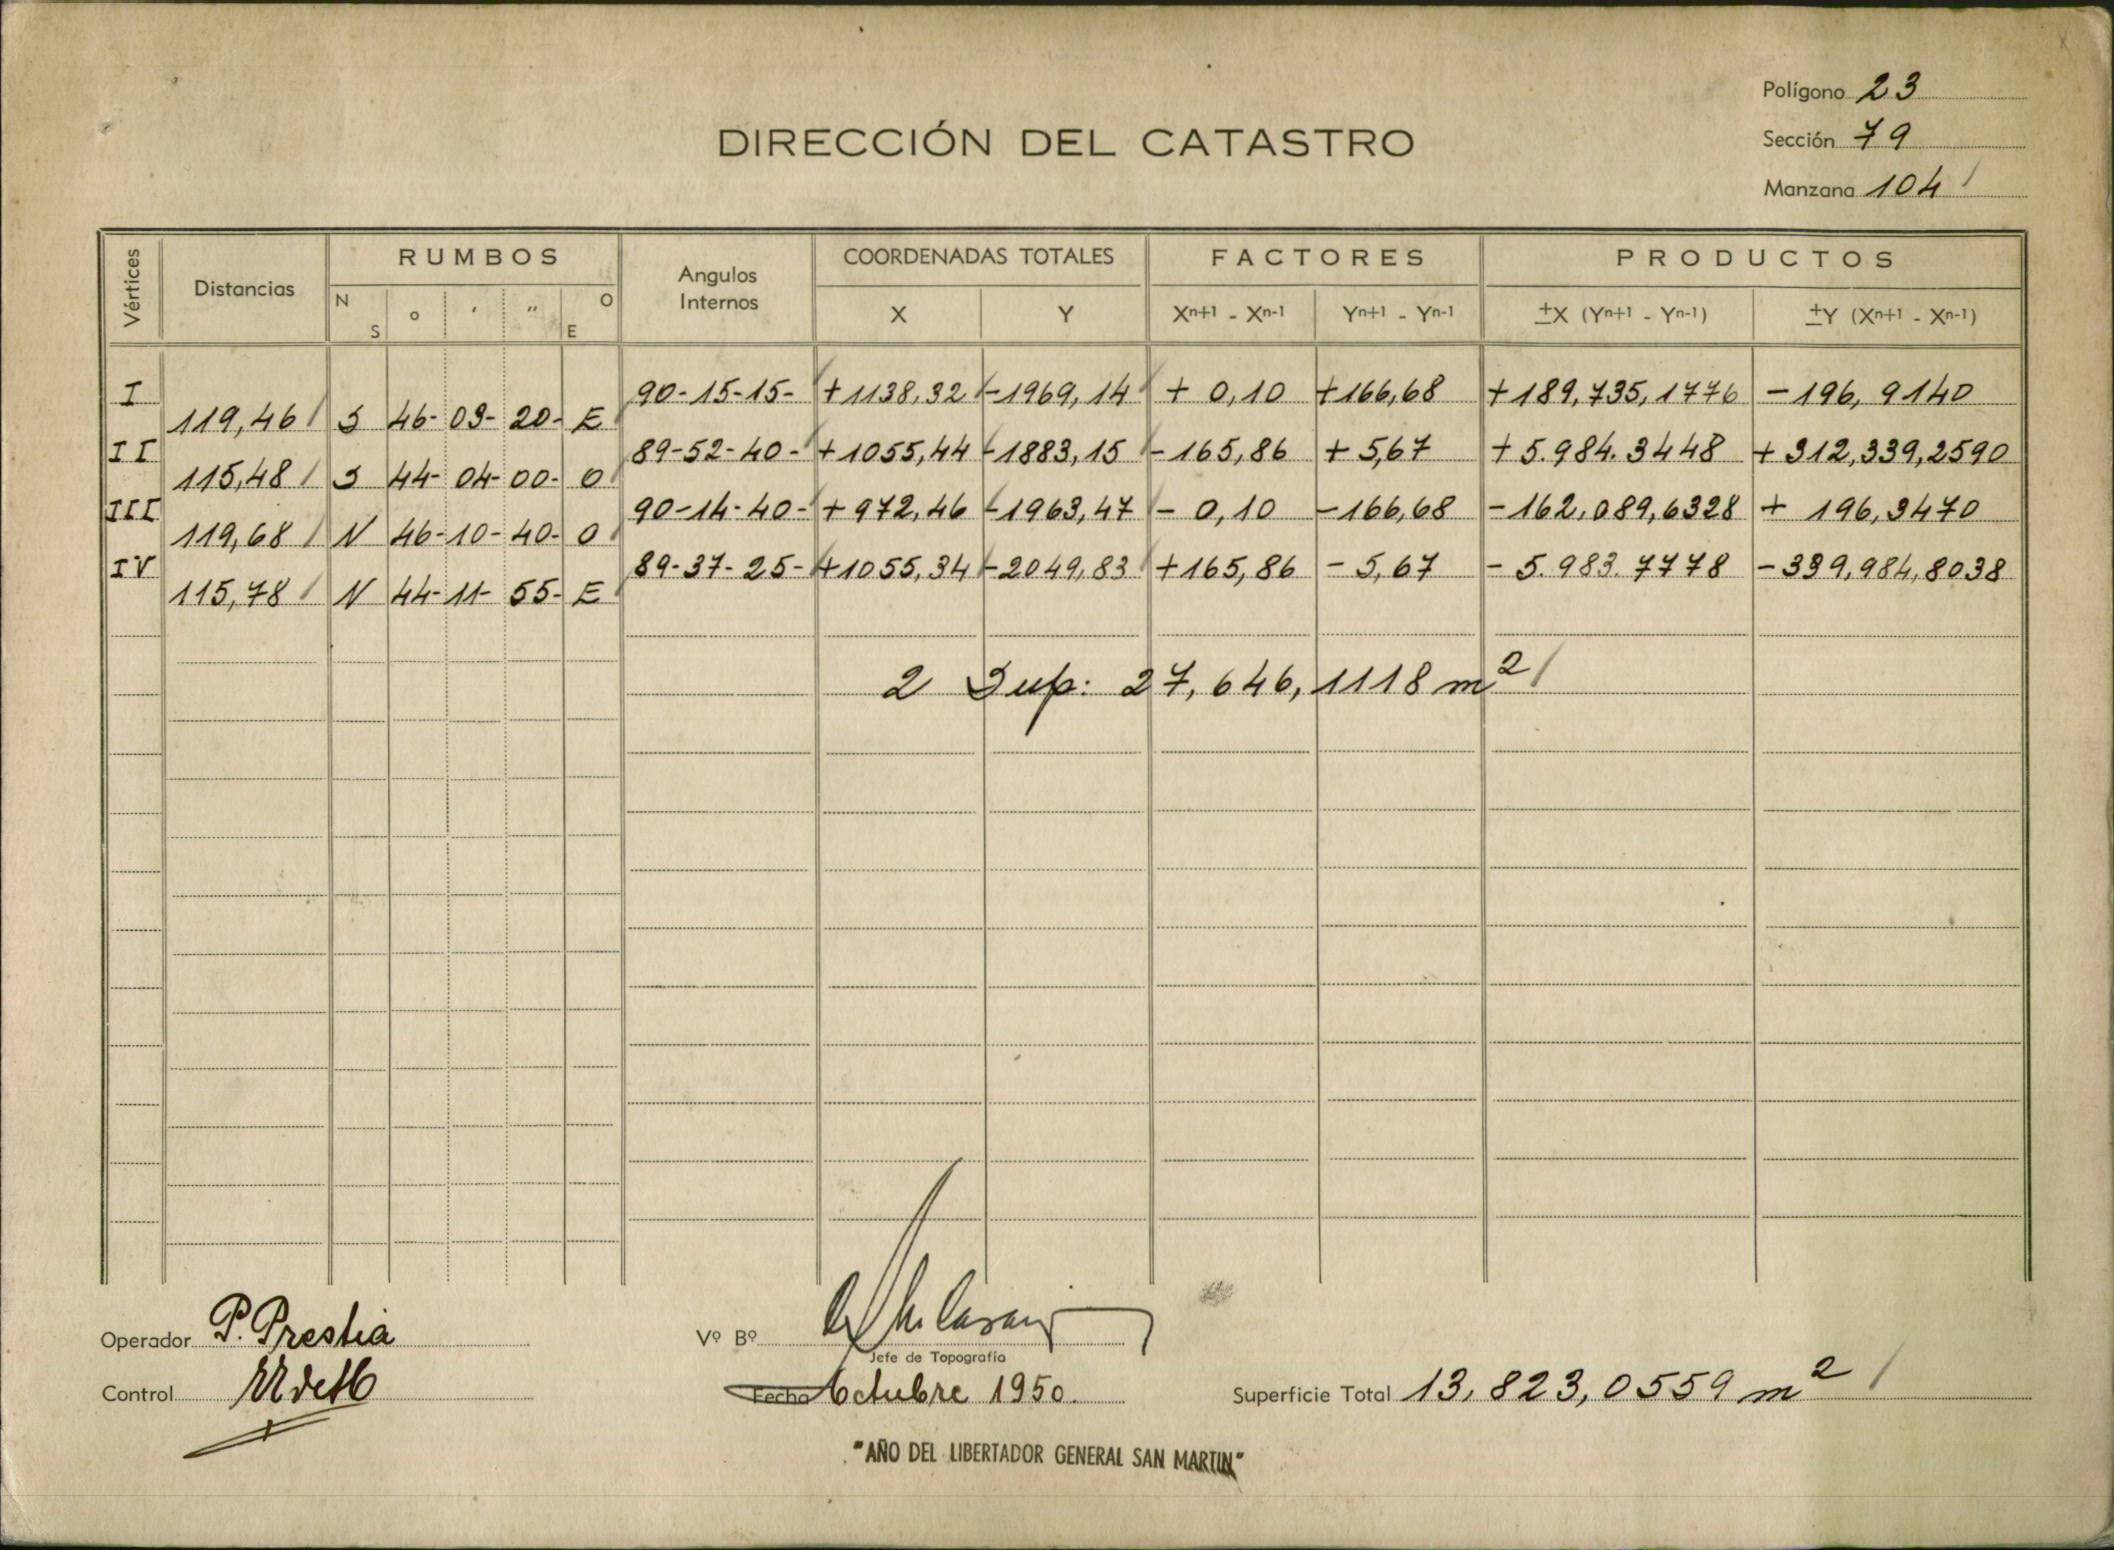 Polígono 23
Sección 79
Manzana 104
DIRECCIÓN DEL CATASTRO
Vértices Distancias RUMBOS Angulos Internos COORDENADAS TOTALES FACTORES PRODUCTOS
N S o ' " O E X Y Xn+1 - Xn-1 Yn+1 - Yn-1 ±X (Yn+1 - Yn-1) ±Y (Xn+1 - Xn-1)
I 90-15-15- +1138,32 -1969,14 + 0,10 +166,68 +189,735,1776 -196,9140
119,46 S 46- 03- 20- E
II 89-52-40- +1055,44 -1883,15 -165,86 + 5,67 + 5.984.3448 +312,339,2590
115,48 S 44- 04- 00- O
III 90-14-40- +972,46 -1963,47 - 0,10 -166,68 -162,089,6328 + 196,3470
119,68 N 46-10-40- O
IV 89-37-25- +1055,34 -2049,83 +165,86 - 5,67 - 5.983.7778 -339,984,8038
115,78 N 44-11- 55- E
2 Sup: 27,646,1118 m2
Operador P. Prestia
Vº Bº
Jefe de Topografía
Control
Fecha Octubre 1950.
Superficie Total 13,823,0559 m2
"AÑO DEL LIBERTADOR GENERAL SAN MARTIN"